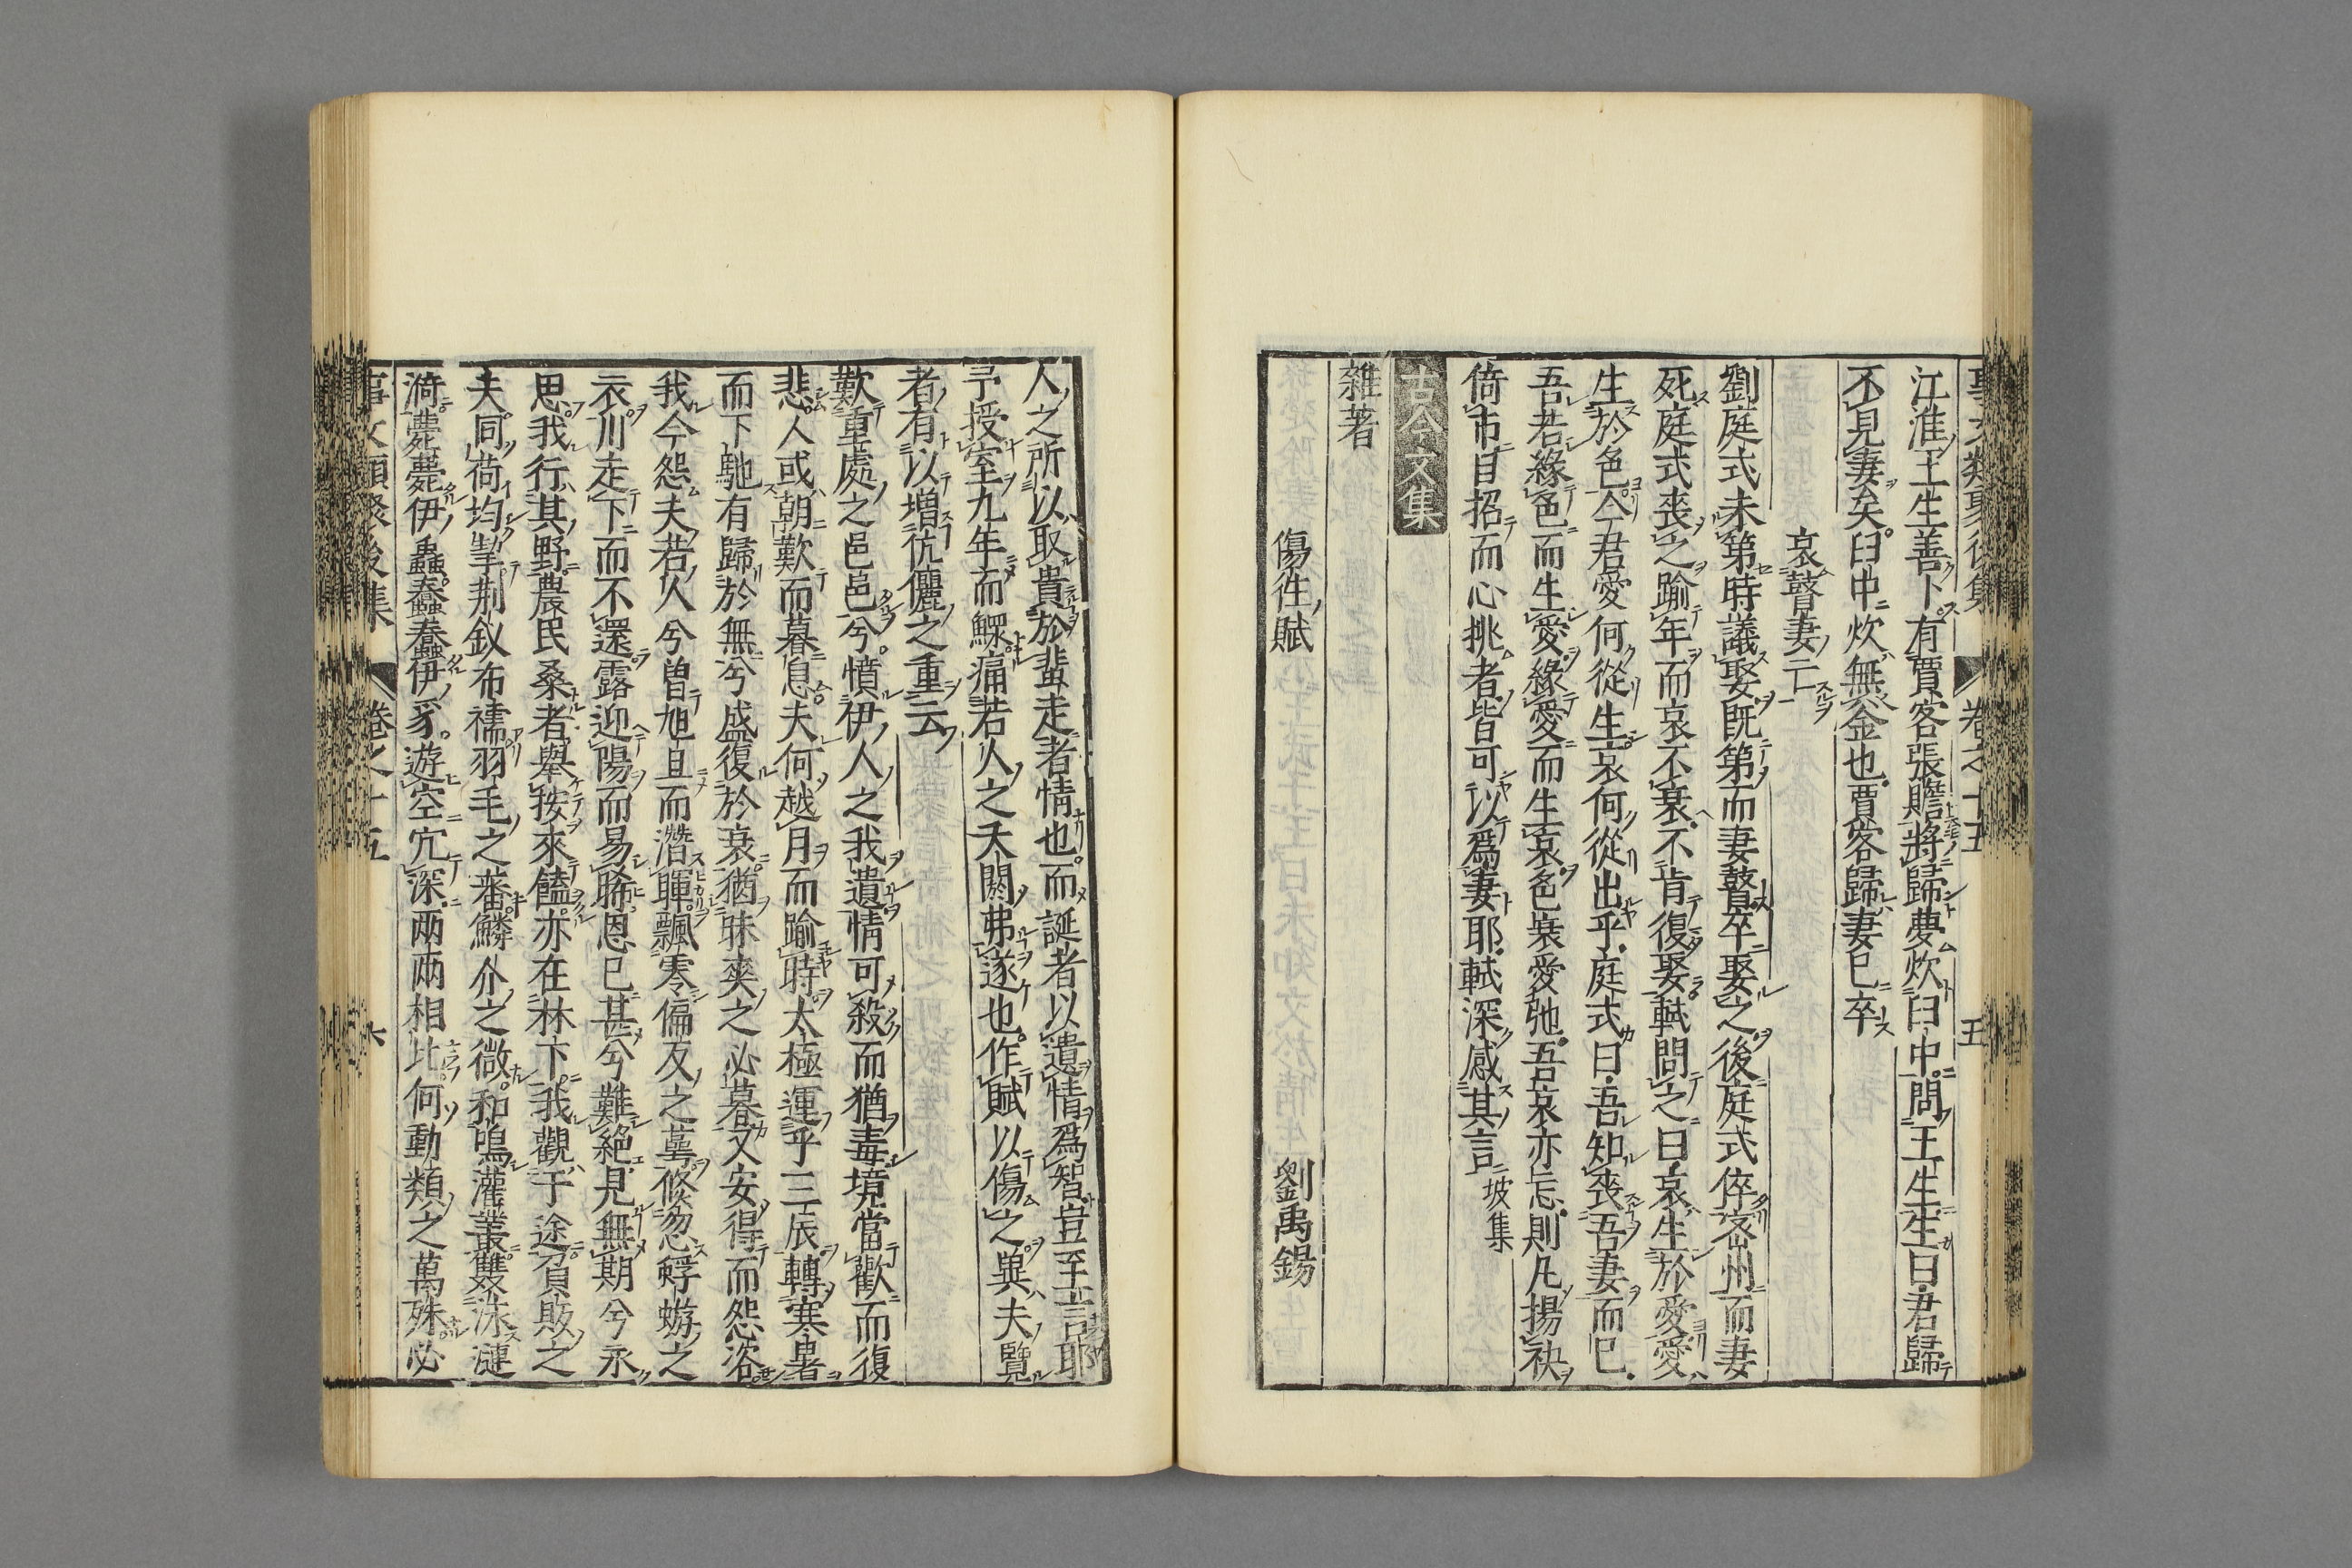 事文類聚後集 卷之十五 五
江淮王生善卜有賈客張瞻將歸夢炊臼中問王生生曰君歸
不見妻矣臼中炊無釡也賈客歸妻已卒
哀瞽妻亡
劉庭式未第時議娶既第而妻瞽卒娶之後庭式倅宻州而妻
死庭式喪之踰年而哀不衰不肯復娶軾問之曰哀生於愛愛
生於色今君愛何從生哀何從出乎庭式曰吾知喪吾妻而已
吾若緣色而生愛緣愛而生哀色衰愛弛吾哀亦忘則凡揚袂
倚市目招而心挑者皆可以爲妻耶軾深感其言坡集
古今文集
雜著
傷徃賦 劉禹錫
人之所以取貴於蜚走者情也而誕者以遺情爲智豈至言耶
予授室九年而鰥痛若人之夭閼弗遂也作賦以傷之兾夫覽
者有以増伉儷之重云
歎重處之邑邑兮憤伊人之我遺情可殺而猶毒境當歡而復
悲人或朝歎而暮息夫何越月而踰時太極運乎三辰轉寒暑
而下馳有歸於無兮盛復於衰猶昧爽之必暮又安得而怨咨
我今怨夫若人兮曽旭且而潛暉飄零偏反之蕚倐忽蜉蝣之
衣川走下而不還露迎陽而易晞恩已甚兮難絶見無期兮永
思我行其野農民桑者舉按來饁亦在林下我觀于途裒販之
夫同荷均挈荆釵布襦羽毛之蕃鱗介之微和鳴灌叢雙泳漣
漪薨薨伊蟲蠢蠢伊豸遊空穴深兩兩相比何動類之萬殊必
事文類聚後集 卷之十五 六